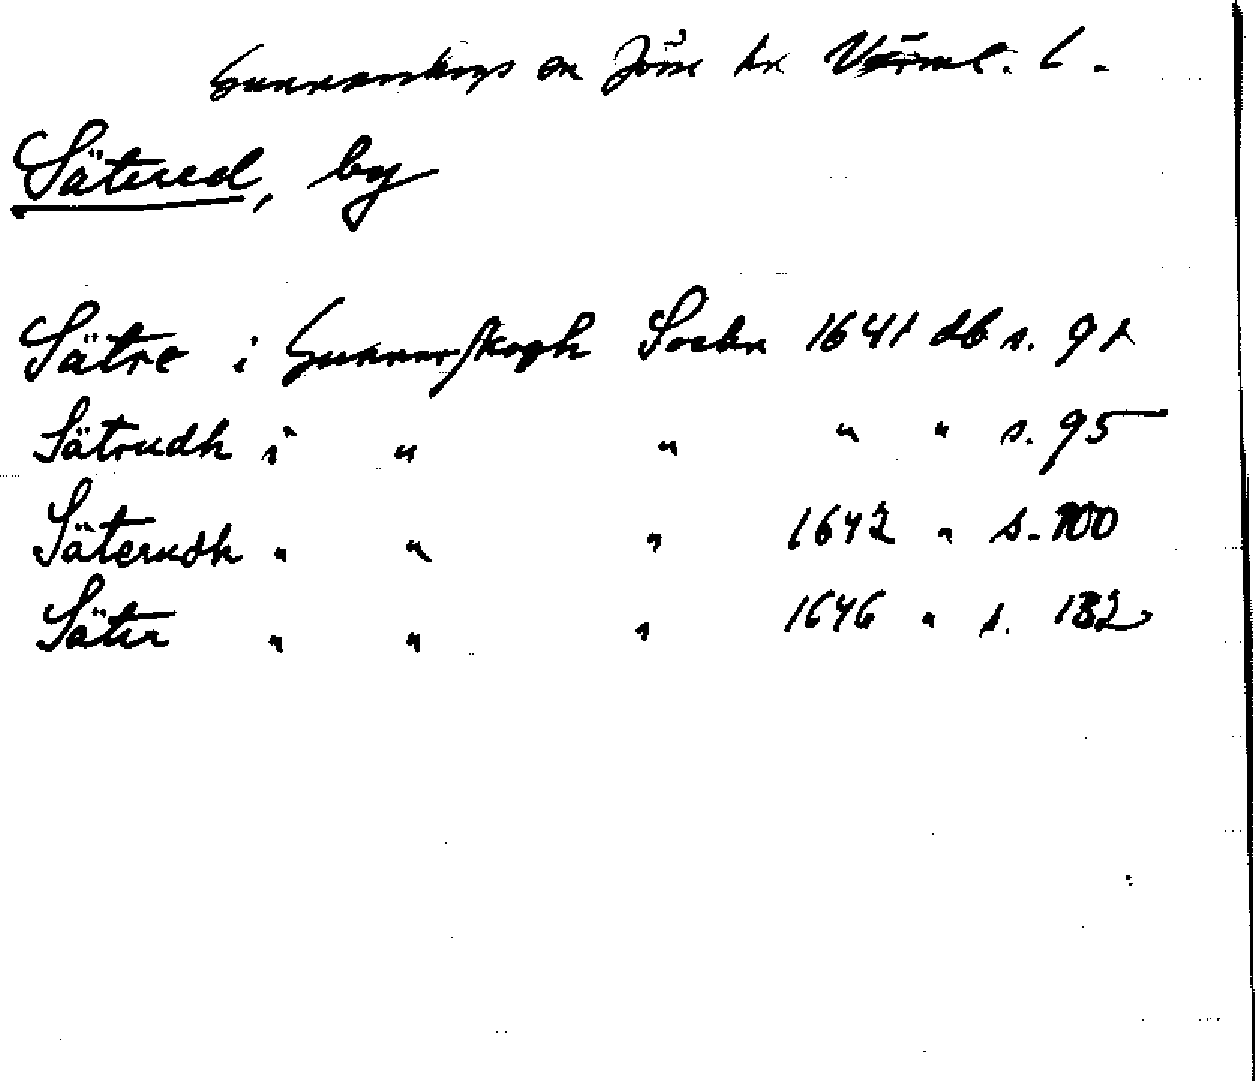 Gunnarskogs sn Jösse hd Värml. l.
Sätered, by
Sätre i Gunnarskogh Sochn 1641 db s. 91
Sätrudh i " " " " s. 95
Säterudh " " " 1642 " s. 100
Säter " " " 1646 " s. 132